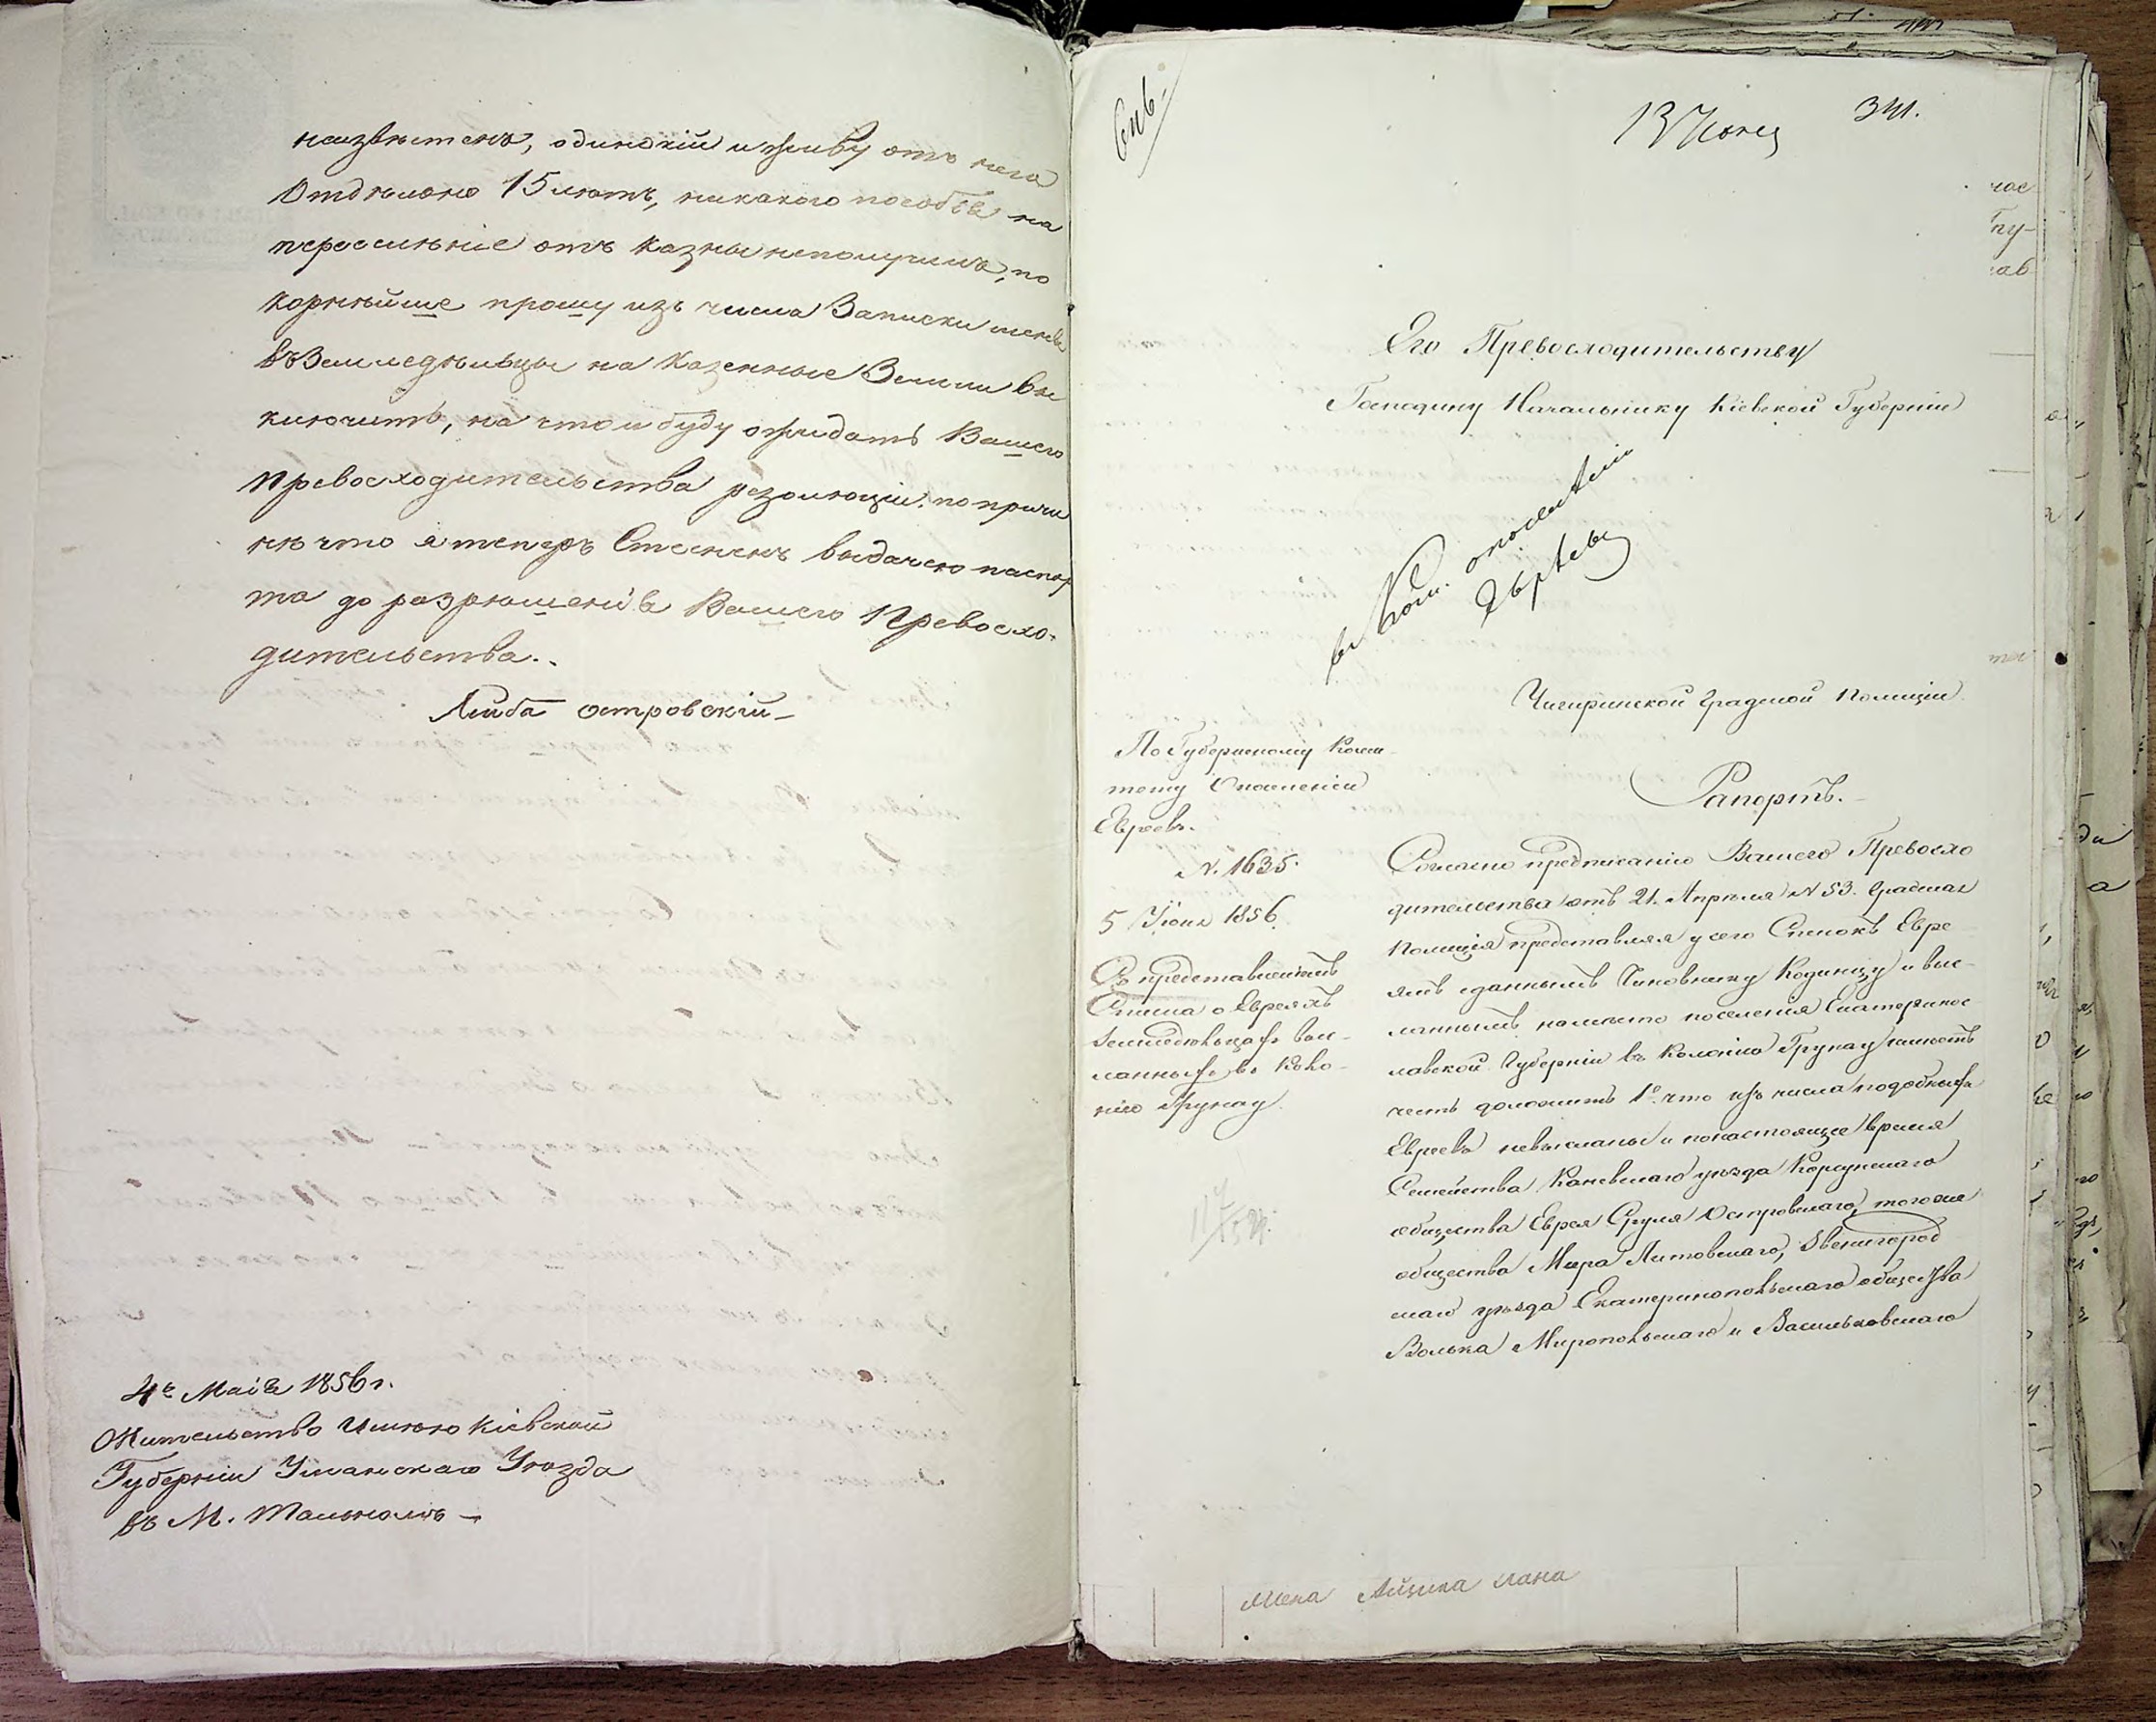 неизвѣстенъ, одинокій и живу отъ него
Отдѣльно 15 лѣтъ, никакого пособія на
переселѣніе отъ казны неполучилъ, по
корнѣйше прошу изъ числа Записки меня
въ Земледѣльцы на Казенные Земли вы
ключить, на что и буду ожидать Вашего
Превосходительства резолюціи, по причи
нѣ что я теперъ Стесненъ выдачею паспор
та до разрѣшенія Вашего Превосхо-
дительства..
Лейба островскій
4го Маія 1856 г.
Жительство Имѣю Кіевской
Губерніи Уманскаго Уѣзда
въ М. Тальномъ
13 Іюня
341.
Его Превосходительству
Господину Начальнику Кіевской Губерніи
въ Ком. о поселеніи
Евреевъ
Чигиринской Градской Полиціи
По Губернскому Коми-
тету О поселеніи
Евреевъ.
N. 1635.
5 Іюня 1856.
Съ представленіемъ
Списка о Евреяхъ
земледѣльцахъ выс-
ланныхъ въ Коло-
нію Грунау.
Рапортъ.
Согласно предписанію Вашего Превосхо
дительства отъ 21. Апрѣля N 53. Градская
Полиція представляя у сего Списокъ Евре-
ямъ сданнымъ Чиновнику Кодинцу и выс-
ланнымъ на мѣсто поселенія Екатеринос
лавской Губерніи въ Колонію Грунау имѣетъ
честь доложить 1е. что изъ числа подобныхъ
Евреевъ невысланы и понастоящее время
Семейства Каневскаго уѣзда Корсунскаго
общества Еврея Сруля Островскаго, того же
общества Меера Литовскаго, Звенигород
скаго уѣзда Екатеринопольскаго общества
Волька Миропольскаго и Васильковскаго
Айзика